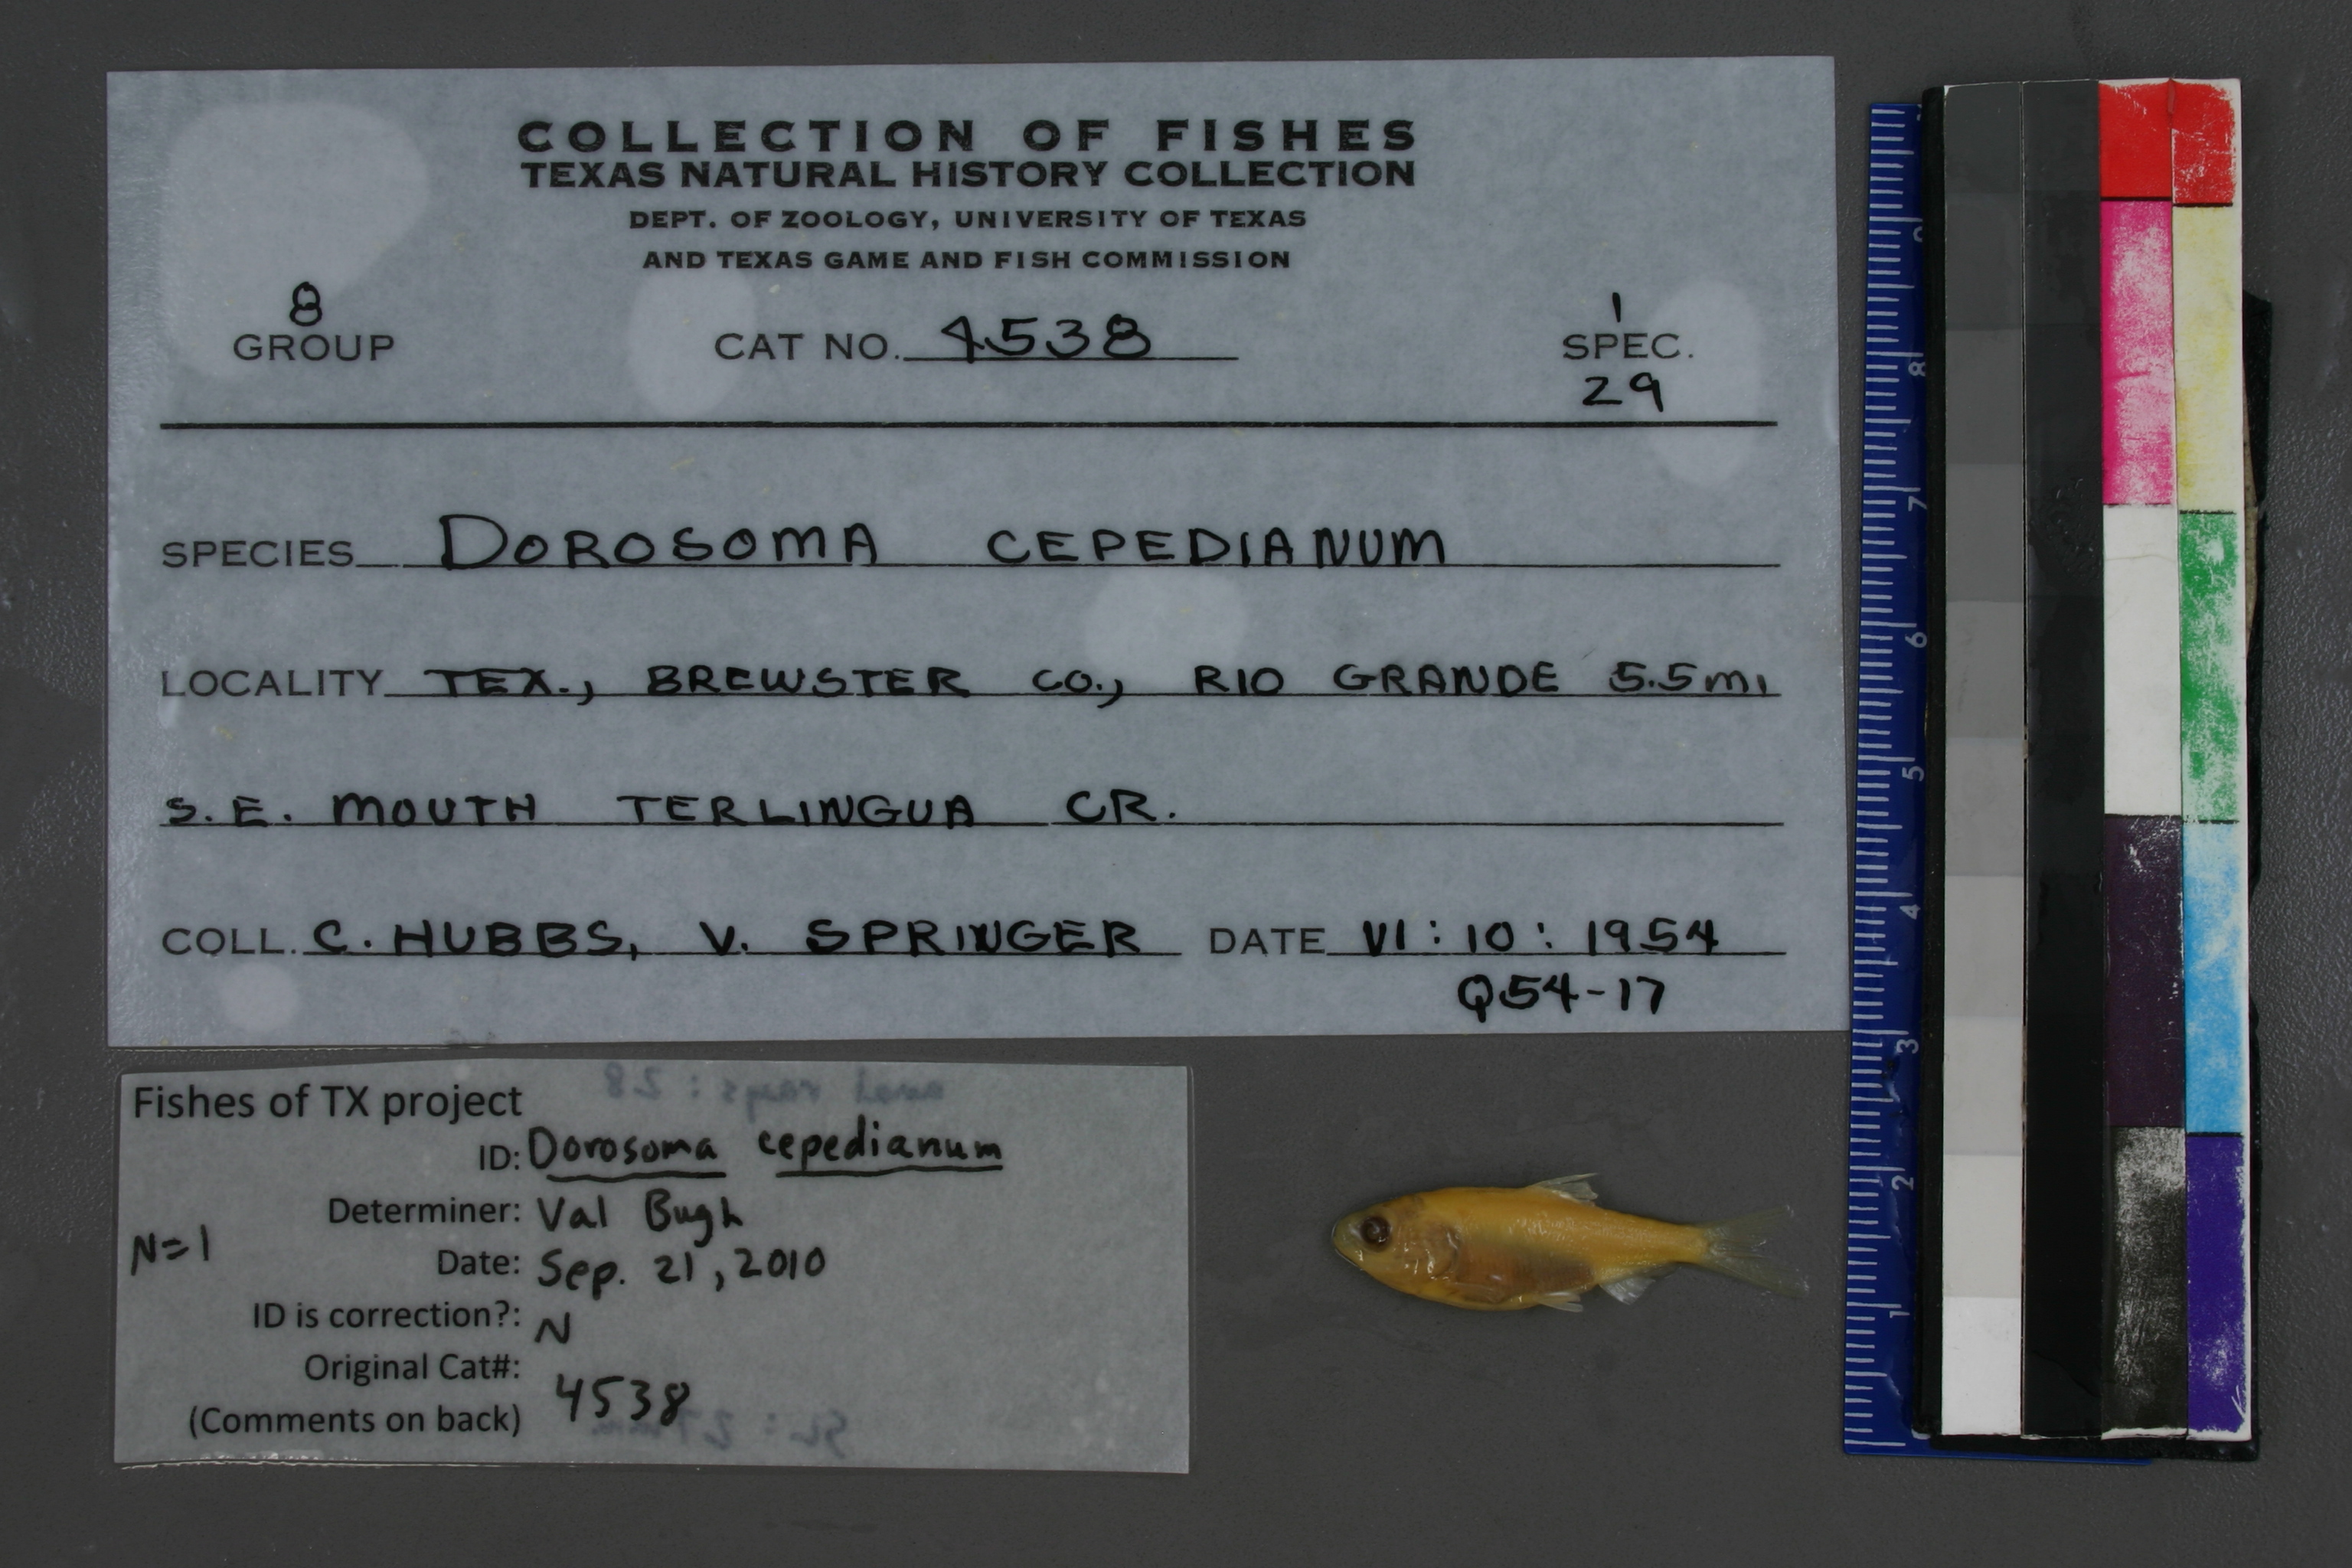 COLLECTION OF FISHES
TEXAS NATURAL HISTORY COLLECTION
DEPT. OF ZOOLOGY, UNIVERSITY OF TEXAS
AND TEXAS GAME AND FISH COMMISSION
8
GROUP
CAT NO. 4538
1
SPEC.
29
SPECIES DOROSOMA CEPEDIANUM
LOCALITY TEX., BREWSTER CO., RIO GRANDE 5.5 MI
S.E. MOUTH TERLINGUA CR.
COLL. C. HUBBS, V. SPRINGER DATE VI:10:1954
Q54-17
anal rays: 28
Fishes of TX project
ID: Dorosoma cepedianum
Determiner: Val Bugh
N=1
Date: Sep. 21, 2010
ID is correction?: N
Original Cat#: 4538
(Comments on back)
SL: 27mm
9
8
7
6
5
4
3
2
1